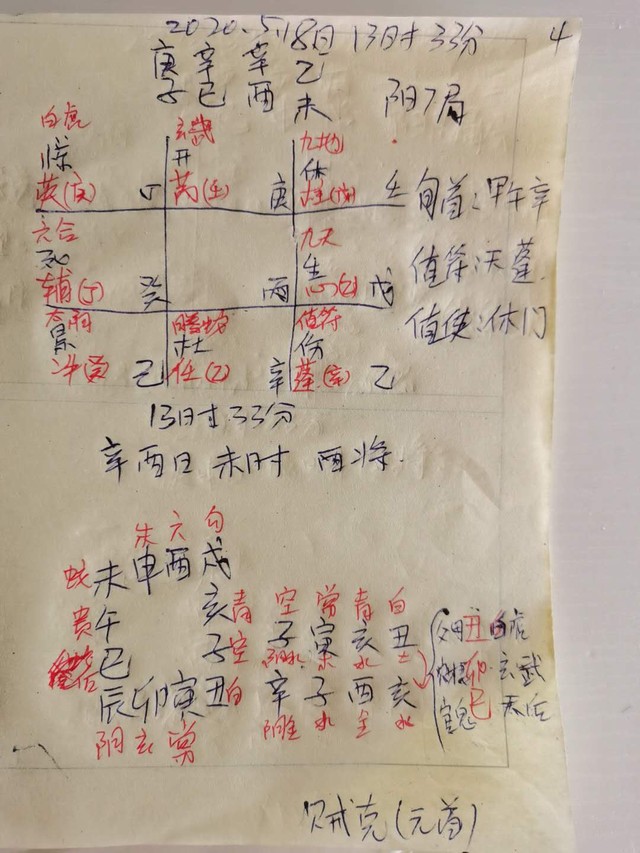 2020.5.18日13时33分 4
庚 辛 辛 乙
子 巳 酉 未 阳7局
白虎 玄武 九地
惊 开 休
英(庚) 丁 芮(壬) 庚 柱(戊) 壬 旬首:甲午辛
六合 九天
死 生 值符:天蓬
辅(丁) 癸 丙 心(乙) 戊
太阴 腾蛇 值符 值使:休门
景 杜 伤
冲(癸) 己 任(己) 辛 蓬(辛) 乙
13时33分
辛酉日 未时 酉将.
朱 六 勾
蛇 未 申 酉 戌
贵 午 亥 青 空 常 青 白
子 寅 亥 丑 丑 白虎
巳 子 空 阴水 木 水 土 卯 玄武
后 辛 子 酉 亥 官鬼 巳 天后
辰 卯 寅 丑 白 阴金 水 金 水
阴 玄 常
贼克(元首)